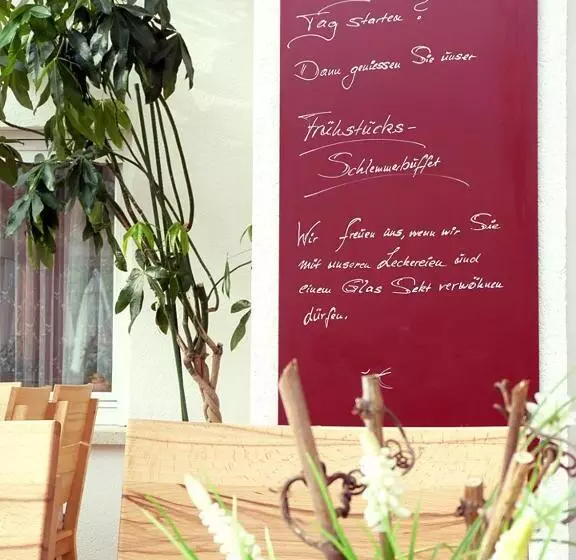 Tag starten ?
Dann geniessen Sie unser
Frühstücks-
Schlemmerbüffet
Wir freuen uns, wenn wir Sie
mit unseren Leckereien und
einem Glas Sekt verwöhnen
dürfen.